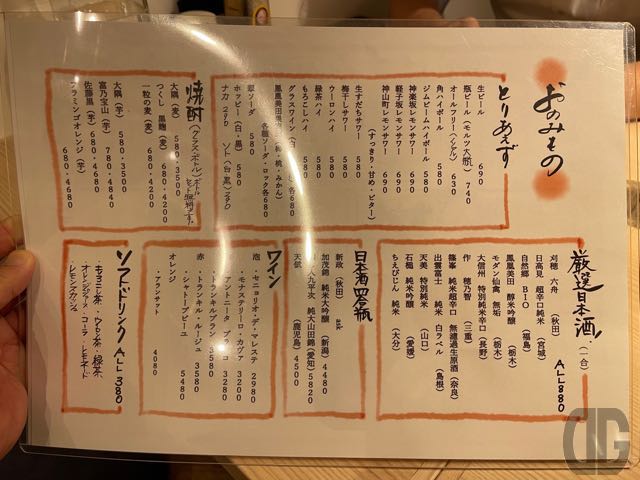 おのみもの
とりあえず
生ビール 690
瓶ビール(モルツ大瓶) 740
オールフリー(ノンアル) 630
角ハイボール 580
ジムビームハイボール 580
神楽坂レモンサワー 690
軽子坂レモンサワー 690
神山町レモンサワー 690
(すっきり・甘め・ビター)
生すだちサワー 580
梅干しサワー 580
ウーロンハイ 580
緑茶ハイ 580
もろこしハイ 580
グラスワイン(白・赤)各680
鳳凰美田果実酒(柚・桃・みかん)
各種ソーダ・ロック各680
翠ソーダ 580
ホッピー(白・黒) 580
ナカ 290 ソト(白黒)390
焼酎(グラス・ボトル)
大隅(麦) 580・3500
つくし 黒麹(麦) 680・4200
一粒の麦(麦) 680・4200
大隅(芋) 580・3500
富乃宝山(芋) 780・4840
佐藤黒(芋) 680・4680
フラミンゴオレンジ(芋) 680・4680
厳選日本酒(一合)
ALL880
刈穂 六舟 (秋田)
日高見 超辛口純米 (宮城)
自然郷 BIO (福島)
鳳凰美田 醇米吟醸 (栃木)
モダン仙禽 無垢 (栃木)
大信州 特別純米辛口(長野)
作 穂乃智 (三重)
篠峯 純米超辛口 無濾過生原酒(奈良)
出雲富士 純米 白ラベル (島根)
天美 特別純米 (山口)
石鎚 純米吟醸 (愛媛)
ちえびじん 純米 (大分)
日本酒四合瓶
新政(秋田) ask
加茂錦 純米大吟醸 (新潟) 4480
醸し人九平次 純大山田錦(愛知)5820
天賦 (鹿児島)4500
ワイン
泡
・セニョリオ・デ・マレステ 2980
・モナステリーロ・カヴァ 3200
白
・アントニータ・プニュコ 3280
・トランキルブラン 3580
赤
・トランキル・ルージュ 3580
・シャトープピーユ 5480
オレンジ
・アランサット 4080
ソフトドリンク ALL 380
・もろこし茶・ウーロン茶・緑茶
・オレンジジュース・コーラ・レモネード
・レモンスカッシュ
DNG